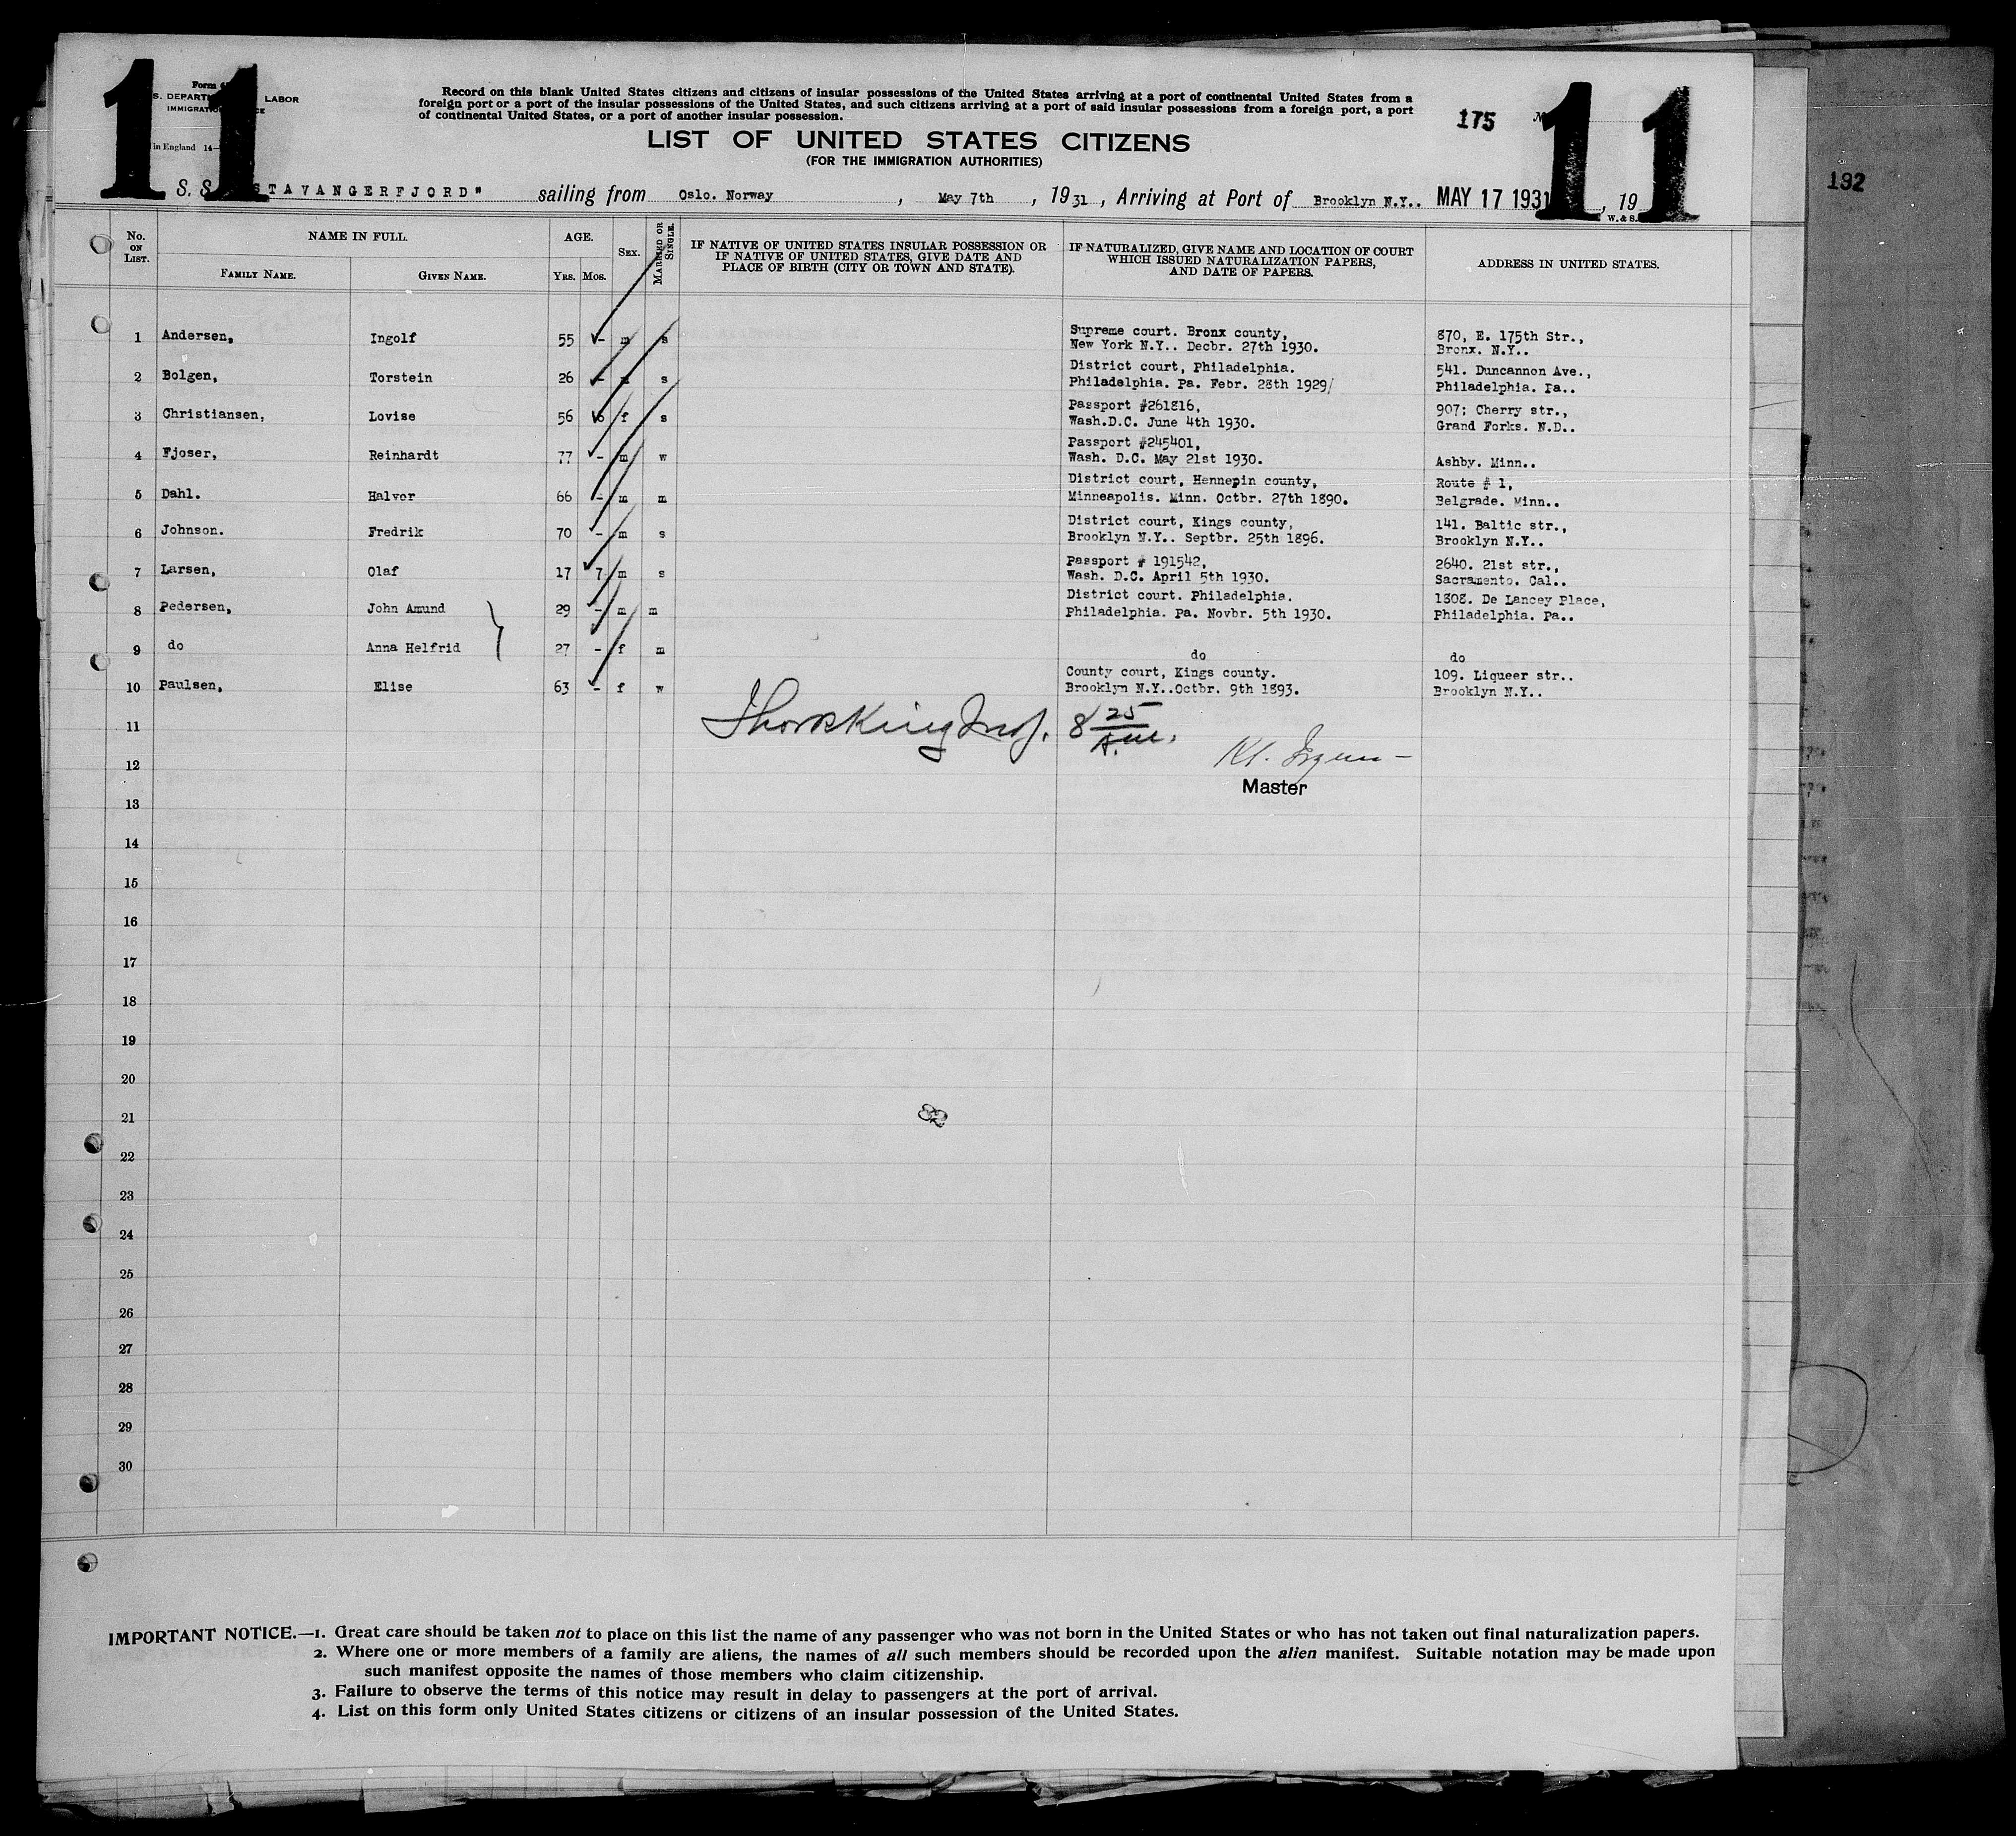 11
11
Form
S. DEPART LABOR
IMMIGRATIO CE
in England 14-
Record on this blank United States citizens and citizens of insular possessions of the United States arriving at a port of continental United States from a
foreign port or a port of the insular possessions of the United States, and such citizens arriving at a port of said insular possessions from a foreign port, a port
of continental United States, or a port of another insular possession.
175
192
LIST OF UNITED STATES CITIZENS
(FOR THE IMMIGRATION AUTHORITIES)
S. S. STAVANGERFJORD" sailing from Oslo. Norway , May 7th , 1931 , Arriving at Port of Brooklyn N.Y.. MAY 17 1931 , 19
W. & S.
No. ON LIST. NAME IN FULL. AGE. SEX. MARRIED OR SINGLE. IF NATIVE OF UNITED STATES INSULAR POSSESSION OR IF NATIVE OF UNITED STATES, GIVE DATE AND PLACE OF BIRTH (CITY OR TOWN AND STATE). IF NATURALIZED, GIVE NAME AND LOCATION OF COURT WHICH ISSUED NATURALIZATION PAPERS, AND DATE OF PAPERS. ADDRESS IN UNITED STATES.
FAMILY NAME. GIVEN NAME. YRS. MOS.
Supreme court. Bronx county, 870, E. 175th Str.,
1 Andersen, Ingolf 55 - m s New York N.Y.. Decbr. 27th 1930. Bronx. N.Y..
District court, Philadelphia. 541. Duncannon Ave.,
2 Bolgen, Torstein 26 - m s Philadelphia. Pa. Febr. 28th 1929/ Philadelphia. Pa..
Passport #261816, 907; Cherry str.,
3 Christiansen, Lovise 56 6 f s Wash.D.C. June 4th 1930. Grand Forks. N.D..
Passport #245401,
4 Fjoser, Reinhardt 77 - m w Wash. D.C. May 21st 1930. Ashby. Minn..
District court, Hennepin county, Route # 1,
5 Dahl. Halvor 66 - m m Minneapolis. Minn. Octbr. 27th 1890. Belgrade. Minn..
District court, Kings county, 141. Baltic str.,
6 Johnson. Fredrik 70 - m s Brooklyn N.Y.. Septbr. 25th 1896. Brooklyn N.Y..
Passport # 191542, 2640. 21st str.,
7 Larsen, Olaf 17 7 m s Wash. D.C. April 5th 1930. Sacramento. Cal..
District court. Philadelphia. 1808. De Lancey Place,
8 Pedersen, John Amund 29 - m m Philadelphia. Pa. Novbr. 5th 1930. Philadelphia. Pa..
9 do Anna Helfrid 27 - f m do do
County court, Kings county. 109. Liqueer str..
10 Paulsen, Elise 63 - f w Brooklyn N.Y..Octbr. 9th 1893. Brooklyn N.Y..
11 8 25 A.M.
12
Master
13
14
15
16
17
18
19
20
21
22
23
24
25
26
27
28
29
30
IMPORTANT NOTICE.—1. Great care should be taken not to place on this list the name of any passenger who was not born in the United States or who has not taken out final naturalization papers.
2. Where one or more members of a family are aliens, the names of all such members should be recorded upon the alien manifest. Suitable notation may be made upon
such manifest opposite the names of those members who claim citizenship.
3. Failure to observe the terms of this notice may result in delay to passengers at the port of arrival.
4. List on this form only United States citizens or citizens of an insular possession of the United States.